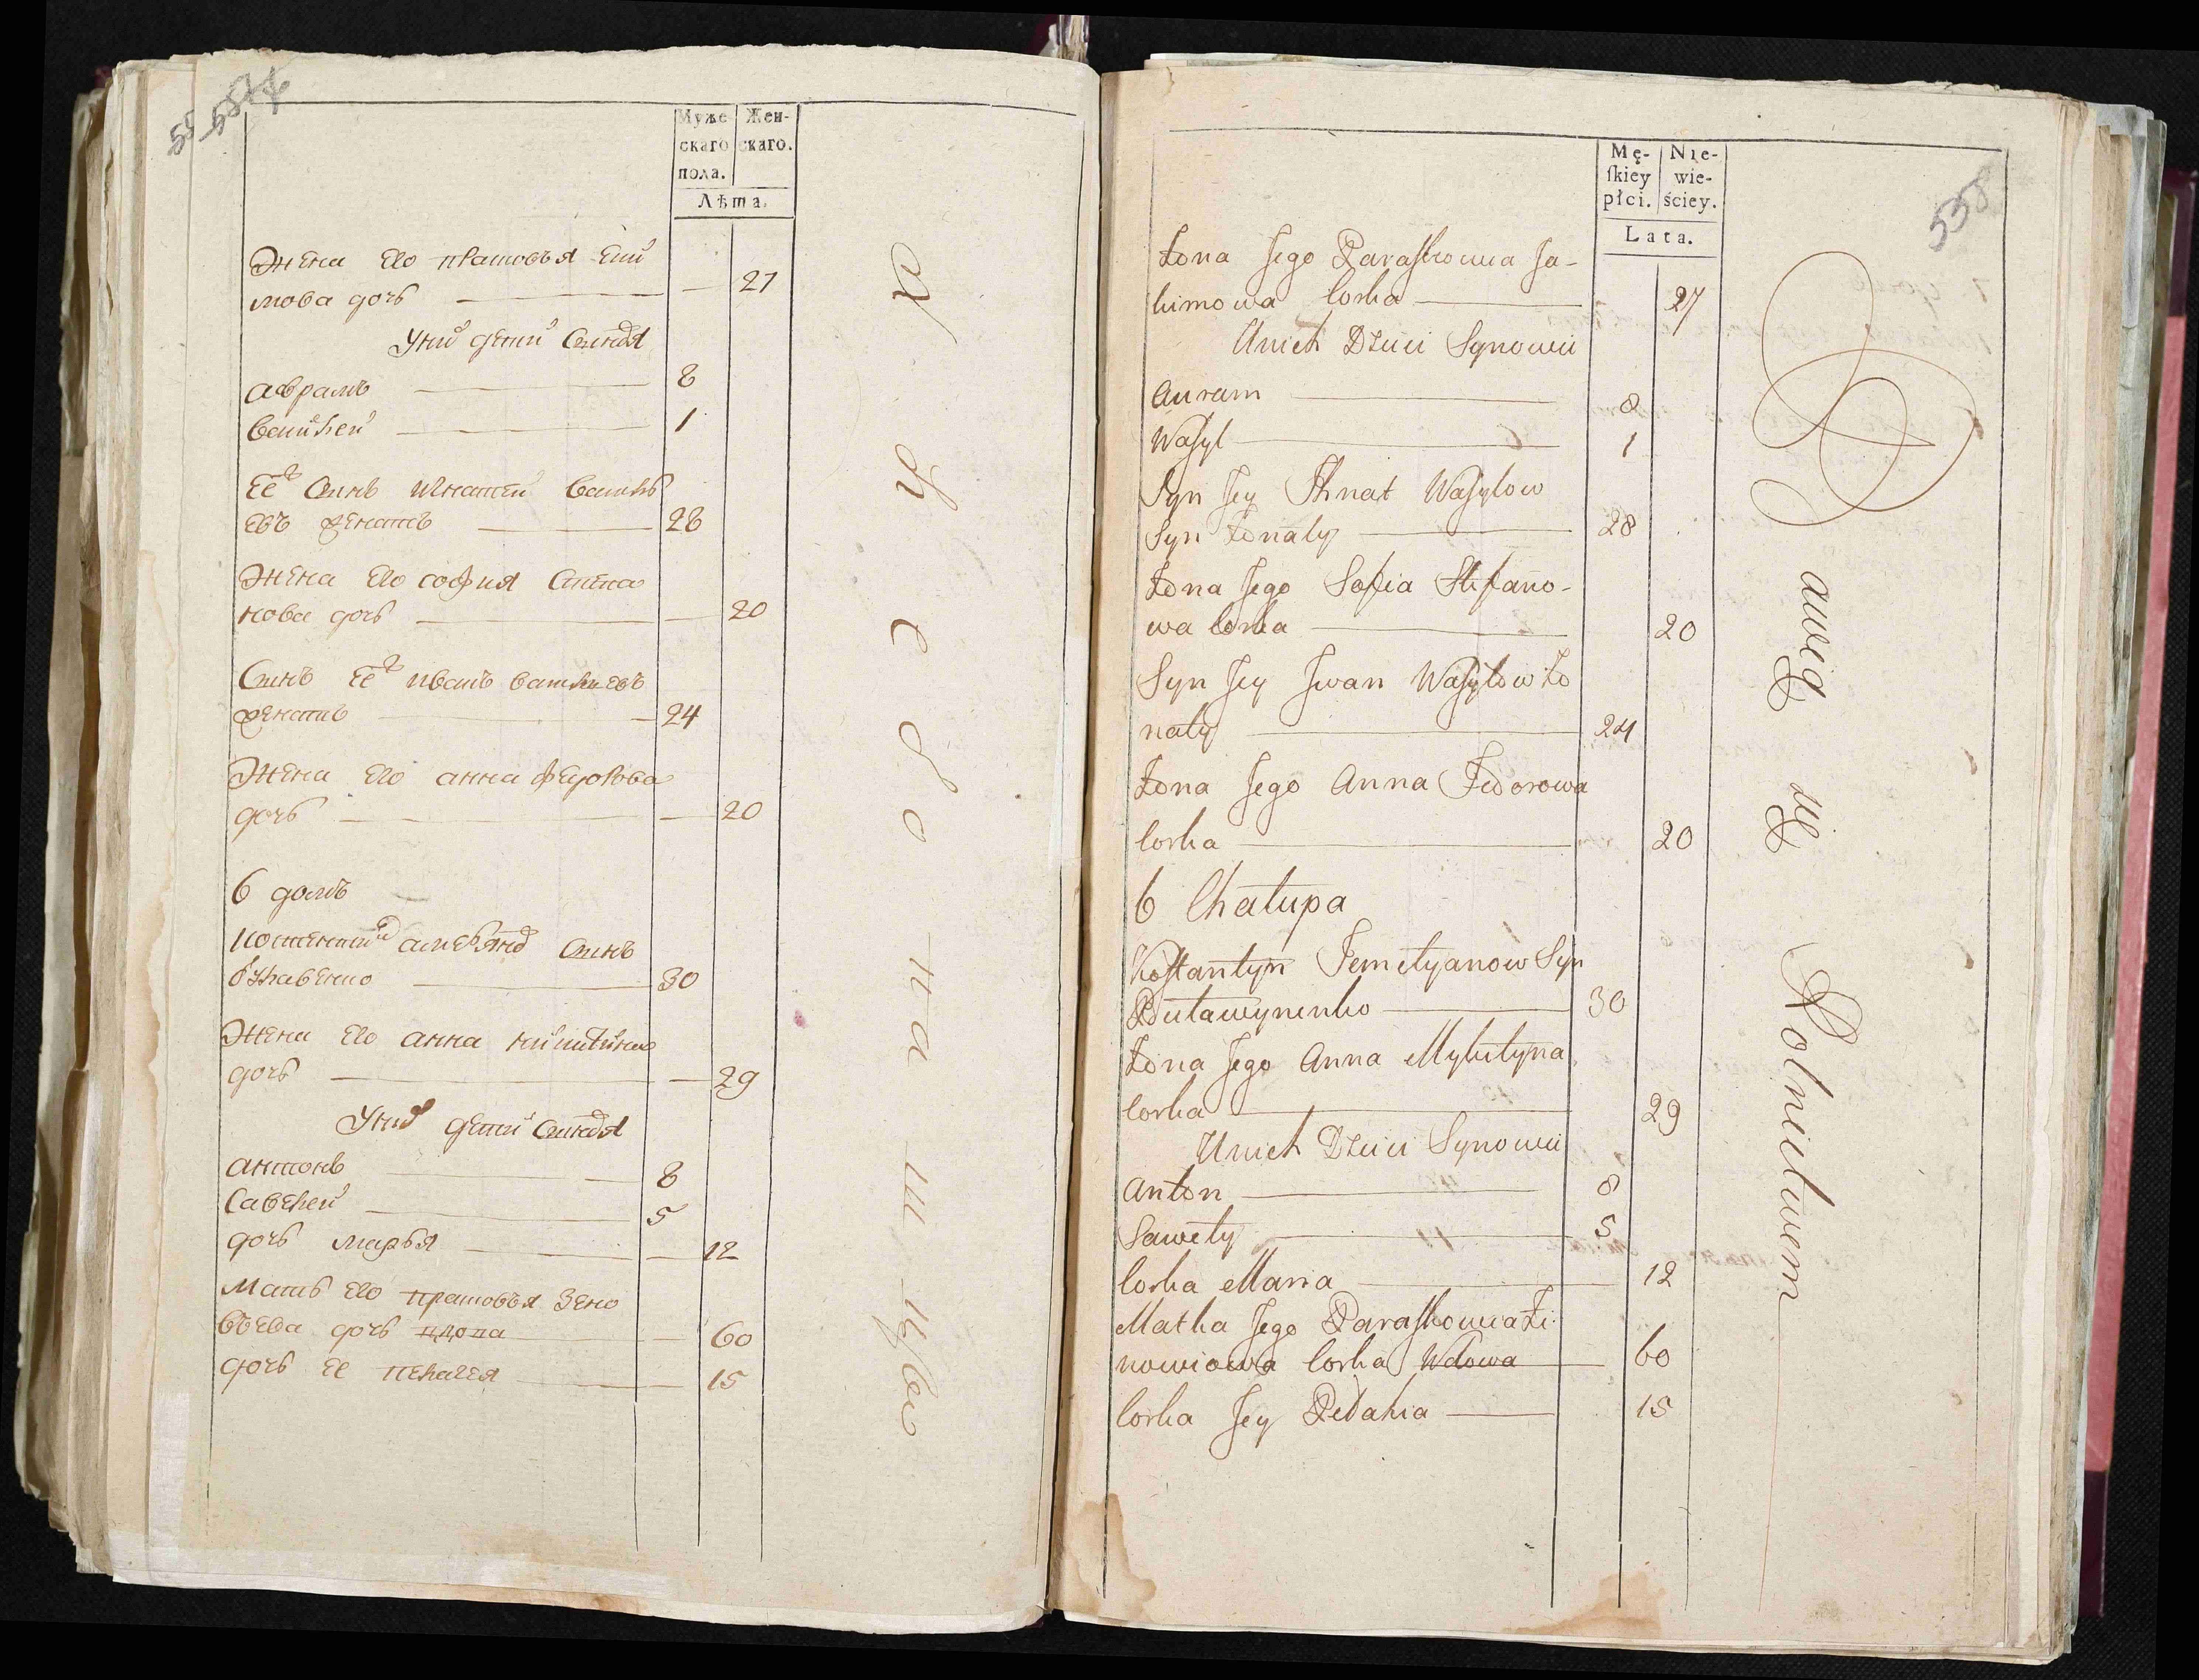 Муже- Жен-
скаго скаго.
пола.
Лѣта.
Жена его прасковья еки
мова дочь — 27
У них дети Синовя
аврамъ — 8
василей — 1
ее Синъ игнатей василь
евъ женатъ — 28
Жена его софия Степа
нова дочь — 20
Синъ ее иванъ васильевъ
женатъ — 24
Жена его анна федорова
дочь — 20
6 домъ
Синъ
30
Жена его анна никитина
дочь — 29
У них дети Синовя
антонъ — 8
Савелей — 5
дочь марья — 12
Мать его прасковья Зено
въева дочь вдова — 60
дочь ее пелагея — 15
558
Mę- Nie-
ſkiey wie-
płci. ściey.
Lata.
Żona Jego Paraſkowia Ja-
kimowa Corka — 27
Unich Dzieci Synowie
Auram — 8
Waſyl — 1
Syn Jey Ihnat Waſylow
Syn Żonaty — 28
Żona Jego Sofia Stefano-
wa Corka — 20
Syn Jey Jwan Waſylow Żo
naty — 24
Żona Jego Anna Fedorowa
Corka — 20
6 Chałupa
Koſtantyn Syn
30
Żona Jego Anna Mykityna
Corka — 29
Unich Dzieci Synowie
Anton — 8
Sawely — 5
Corka Maria — 12
Matka Jego Paraſkowia Zi-
nowiowa Corka Wdowa — 60
Corka Jey Pelahia — 15
Bawią się Rolnictwem